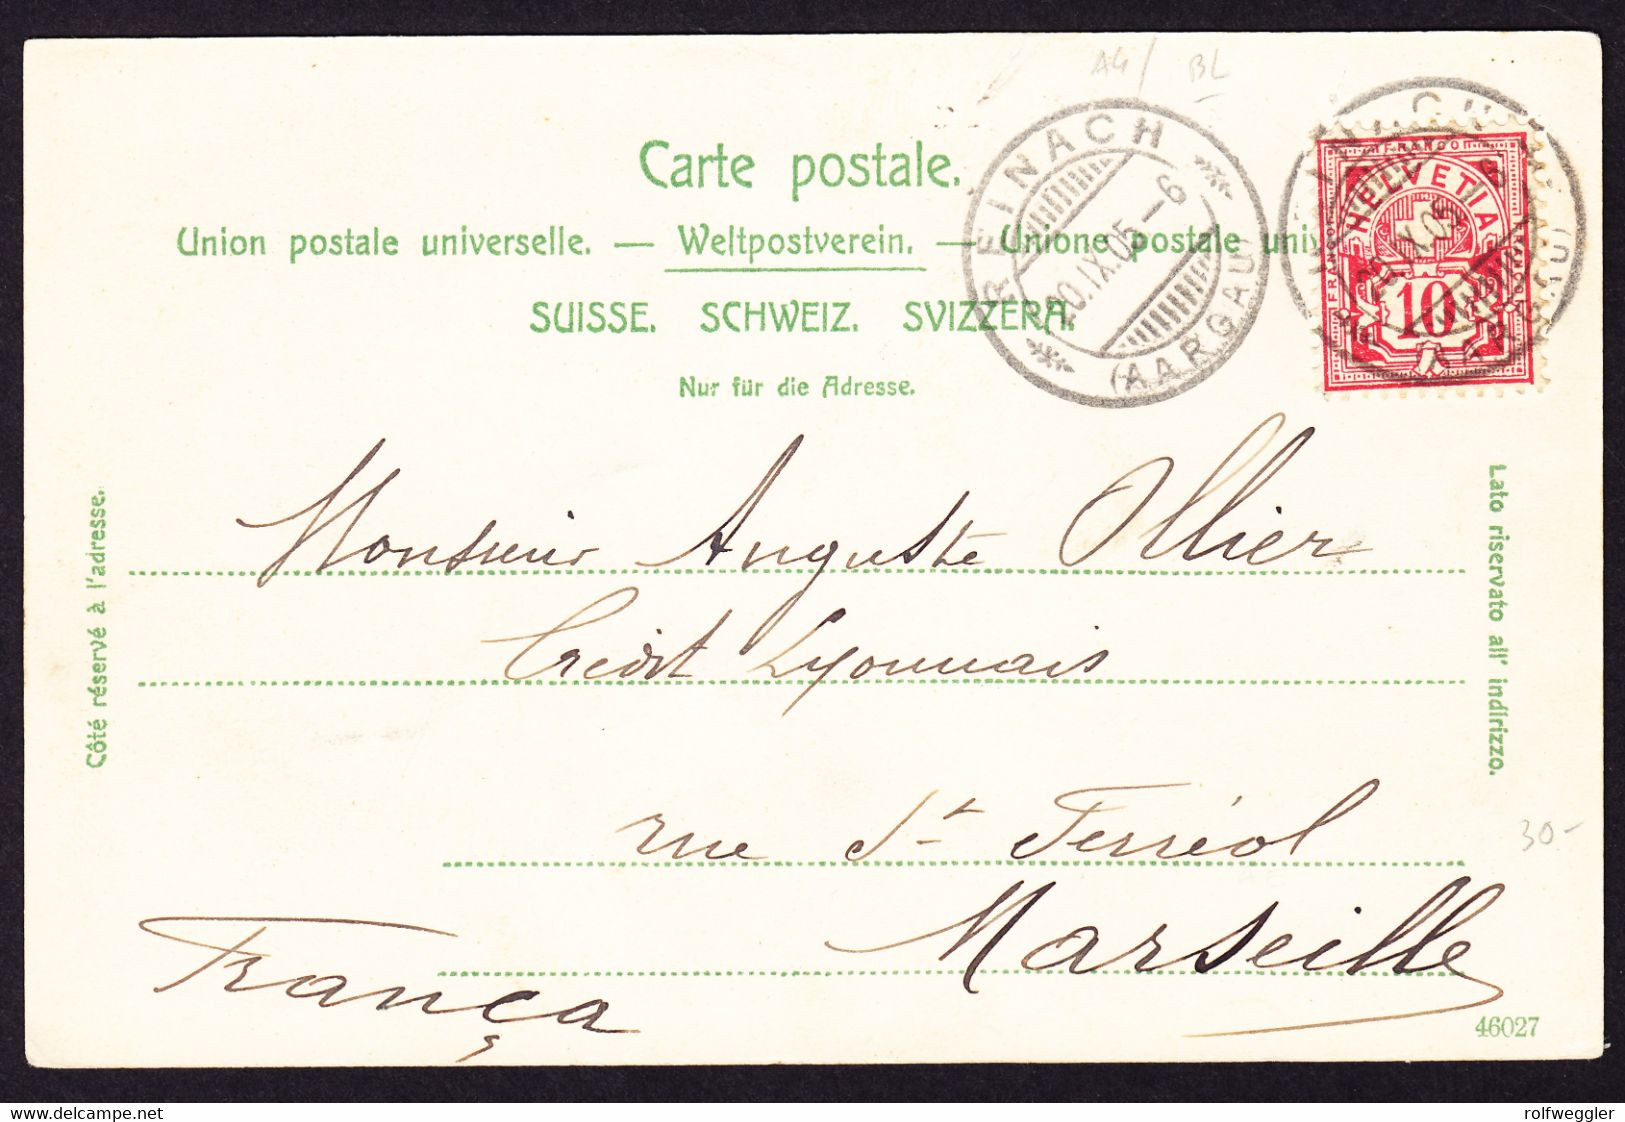 AG / BL
Carte postale.
Union postale universelle. — Weltpostverein. — Unione postale uni
SUISSE. SCHWEIZ. SVIZZERA.
Nur für die Adresse.
REINACH
20.IX.05–6
(AARGAU)
FRANCO
HELVETIA
10
Côté réservé à l'adresse.
Lato riservato all' indirizzo.
Monsieur Auguste Ollier
Crédit Lyonnais
rue St Ferréol
Marseille
França
30.-
46027
delcampe.net
rolfweggler